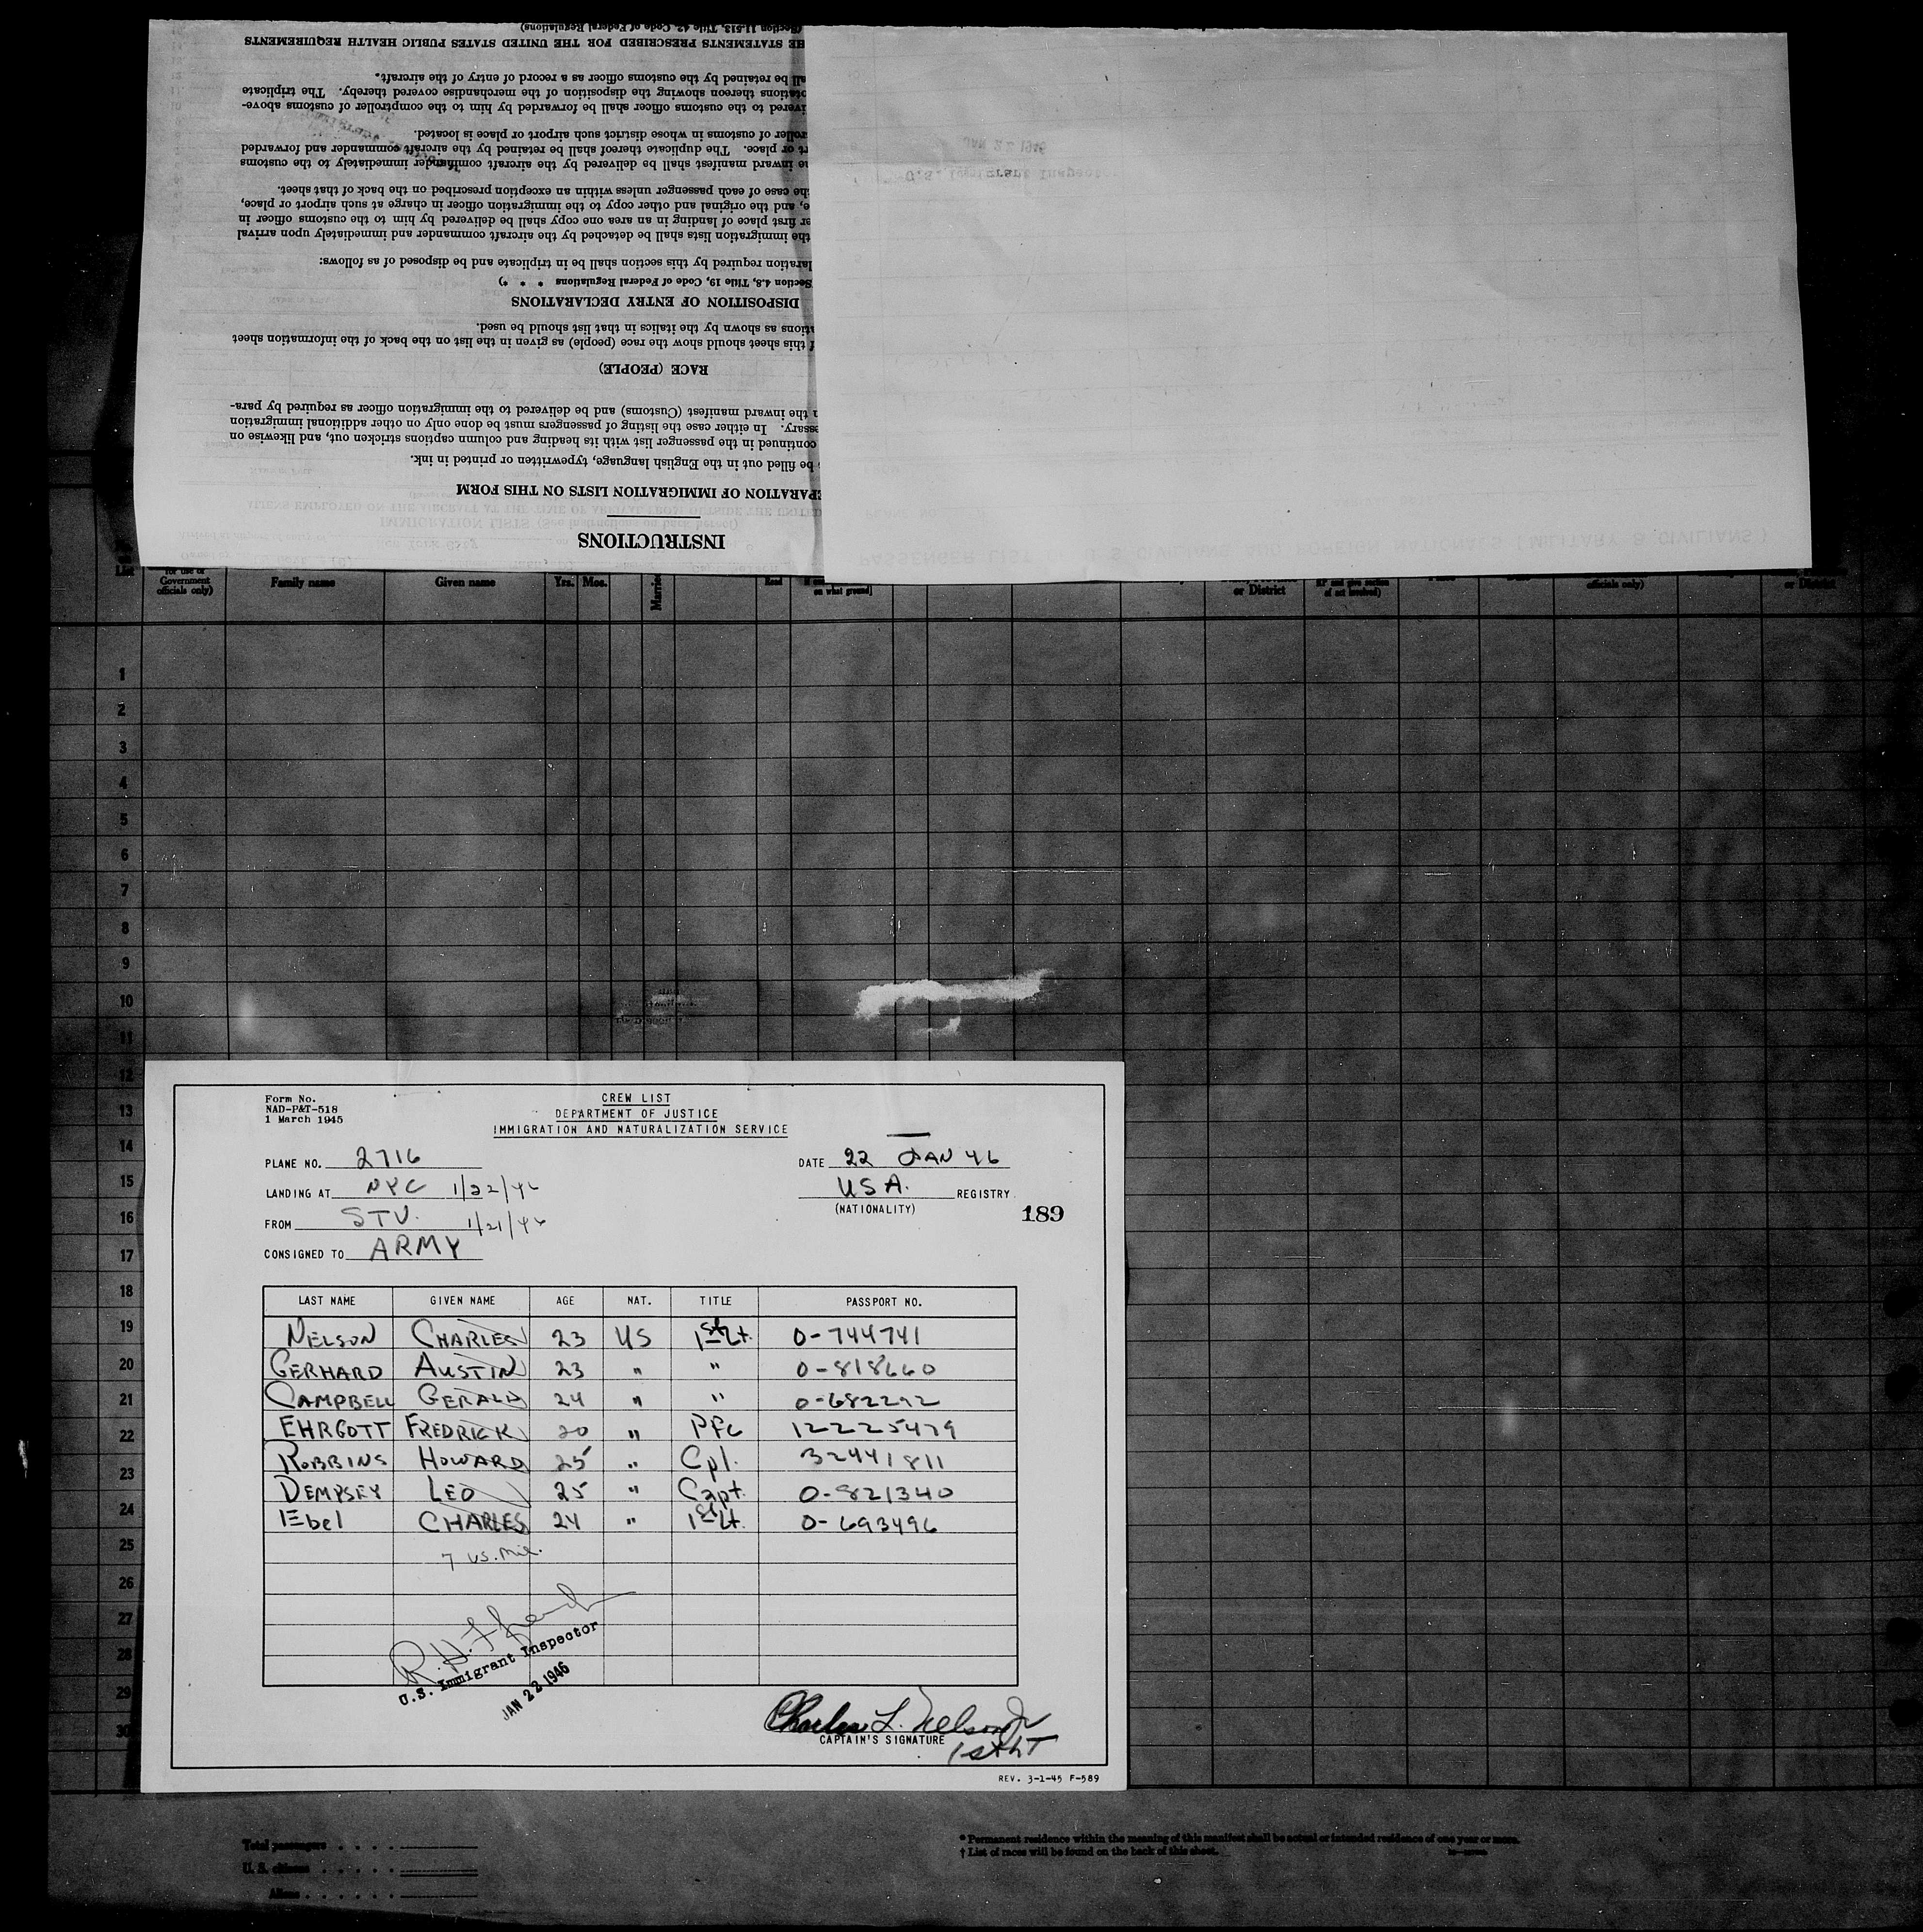 (Section 11.513, Title 42, Code of Federal Regulations)
HE STATEMENTS PRESCRIBED FOR THE UNITED STATES PUBLIC HEALTH REQUIREMENTS
all be retained by the customs officer as a record of entry of the aircraft.
otations thereon showing the disposition of the merchandise covered thereby. The triplicate
ivered to the customs officer shall be forwarded by him to the comptroller of customs above-
roller of customs in whose district such airport or place is located.
rt or place. The duplicate thereof shall be retained by the aircraft commander and forwarded
he inward manifest shall be delivered by the aircraft commander immediately to the customs
the case of each passenger unless within an exception prescribed on the back of that sheet.
e, and the original and other copy to the immigration officer in charge at such airport or place,
er first place of landing in an area one copy shall be delivered by him to the customs officer in
the immigration lists shall be detached by the aircraft commander and immediately upon arrival
laration required by this section shall be in triplicate and be disposed of as follows:
Section 4.8, Title 19, Code of Federal Regulations * * *)
DISPOSITION OF ENTRY DECLARATIONS
ations as shown by the italics in that list should be used.
f this sheet should show the race (people) as given in the list on the back of the information sheet
RACE (PEOPLE)
n the inward manifest (Customs) and be delivered to the immigration officer as required by para-
ssary. In either case the listing of passengers must be done only on other additional immigration
continued in the passenger list with its heading and column captions stricken out, and likewise on
be filled out in the English language, typewritten or printed in ink.
EPARATION OF IMMIGRATION LISTS ON THIS FORM
INSTRUCTIONS
JAN 22 1946
U.S. Immigrant Inspector
PASSENGER LIST U S CIVILIANS AND FOREIGN NATIONALS (MILITARY & CIVILIANS)
List
for use of Government officials only)
Family name
Given name
Yrs.
Mos.
Married
Read
on what ground]
or District
officials only)
or District
1
2
3
4
5
6
7
8
9
10
11
12
13
14
15
16
17
18
19
20
21
22
23
24
25
26
27
28
29
30
Form No.
NAD-P&T-518
1 March 1945
CREW LIST
DEPARTMENT OF JUSTICE
IMMIGRATION AND NATURALIZATION SERVICE
PLANE NO. 2716
DATE 22 JAN 46
LANDING AT NYC 1/22/46
USA. REGISTRY
(NATIONALITY)
189
FROM STV. 1/21/46
CONSIGNED TO ARMY
LAST NAME GIVEN NAME AGE NAT. TITLE PASSPORT NO.
NELSON CHARLES 23 US 1st Lt. 0-744741
GERHARD AUSTIN 23 " " 0-818660
CAMPBELL GERALD 24 " " 0-682292
EHRGOTT FREDRICK 20 " Pfc 12225479
ROBBINS HOWARD 25 " Cpl. 32441811
DEMPSEY LEO 25 " Capt. 0-821340
Ebel CHARLES 24 " 1st Lt. 0-693496
7 US. Mil.
U.S. Immigrant Inspector
JAN 22 1946
Charles L. Nelson Jr
CAPTAIN'S SIGNATURE
1st LT
REV. 3-1-45 F-589
Total passengers
U. S. citizens
Aliens
* Permanent residence within the meaning of this manifest shall be actual or intended residence of one year or more.
† List of races will be found on the back of this sheet.